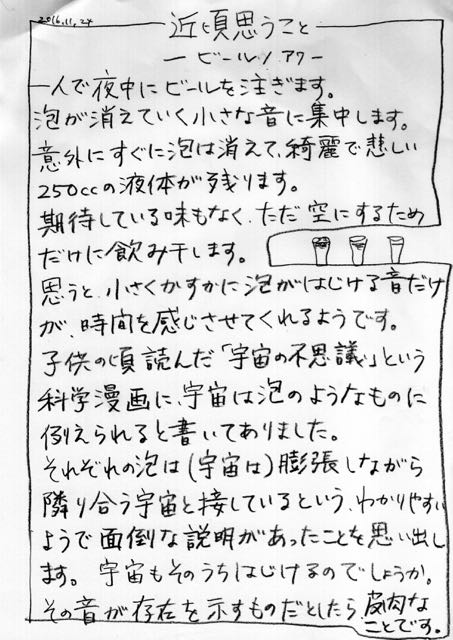 2016.11.24
近頃思うこと
ービールノアワー
一人で夜中にビールを注ぎます。
泡が消えていく小さな音に集中します。
意外にすぐに泡は消えて、綺麗で悲しい
250ccの液体が残ります。
期待している味もなく、ただ空にするため
だけに飲み干します。
思うと、小さくかすかに泡がはじける音だけ
が、時間を感じさせてくれるようです。
子供の頃読んだ「宇宙の不思議」という
科学漫画に、宇宙は泡のようなものに
例えられると書いてありました。
それぞれの泡は(宇宙は)膨張しながら
隣り合う宇宙と接しているという、わかりやすい
ようで面倒な説明があったことを思い出し
ます。宇宙もそのうちはじけるのでしょうか。
その音が存在を示すものだとしたら、皮肉な
ことです。